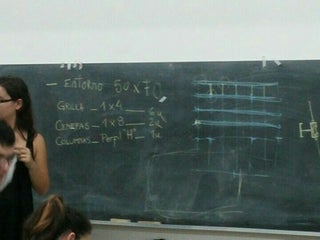 — ENTORNO 50 x 70
GRILLA _ 1x4 ___ 6u
CENEFAS _ 1x8 ___ 2u
COLUMNAS _ Perfil "H" _ 9u
H